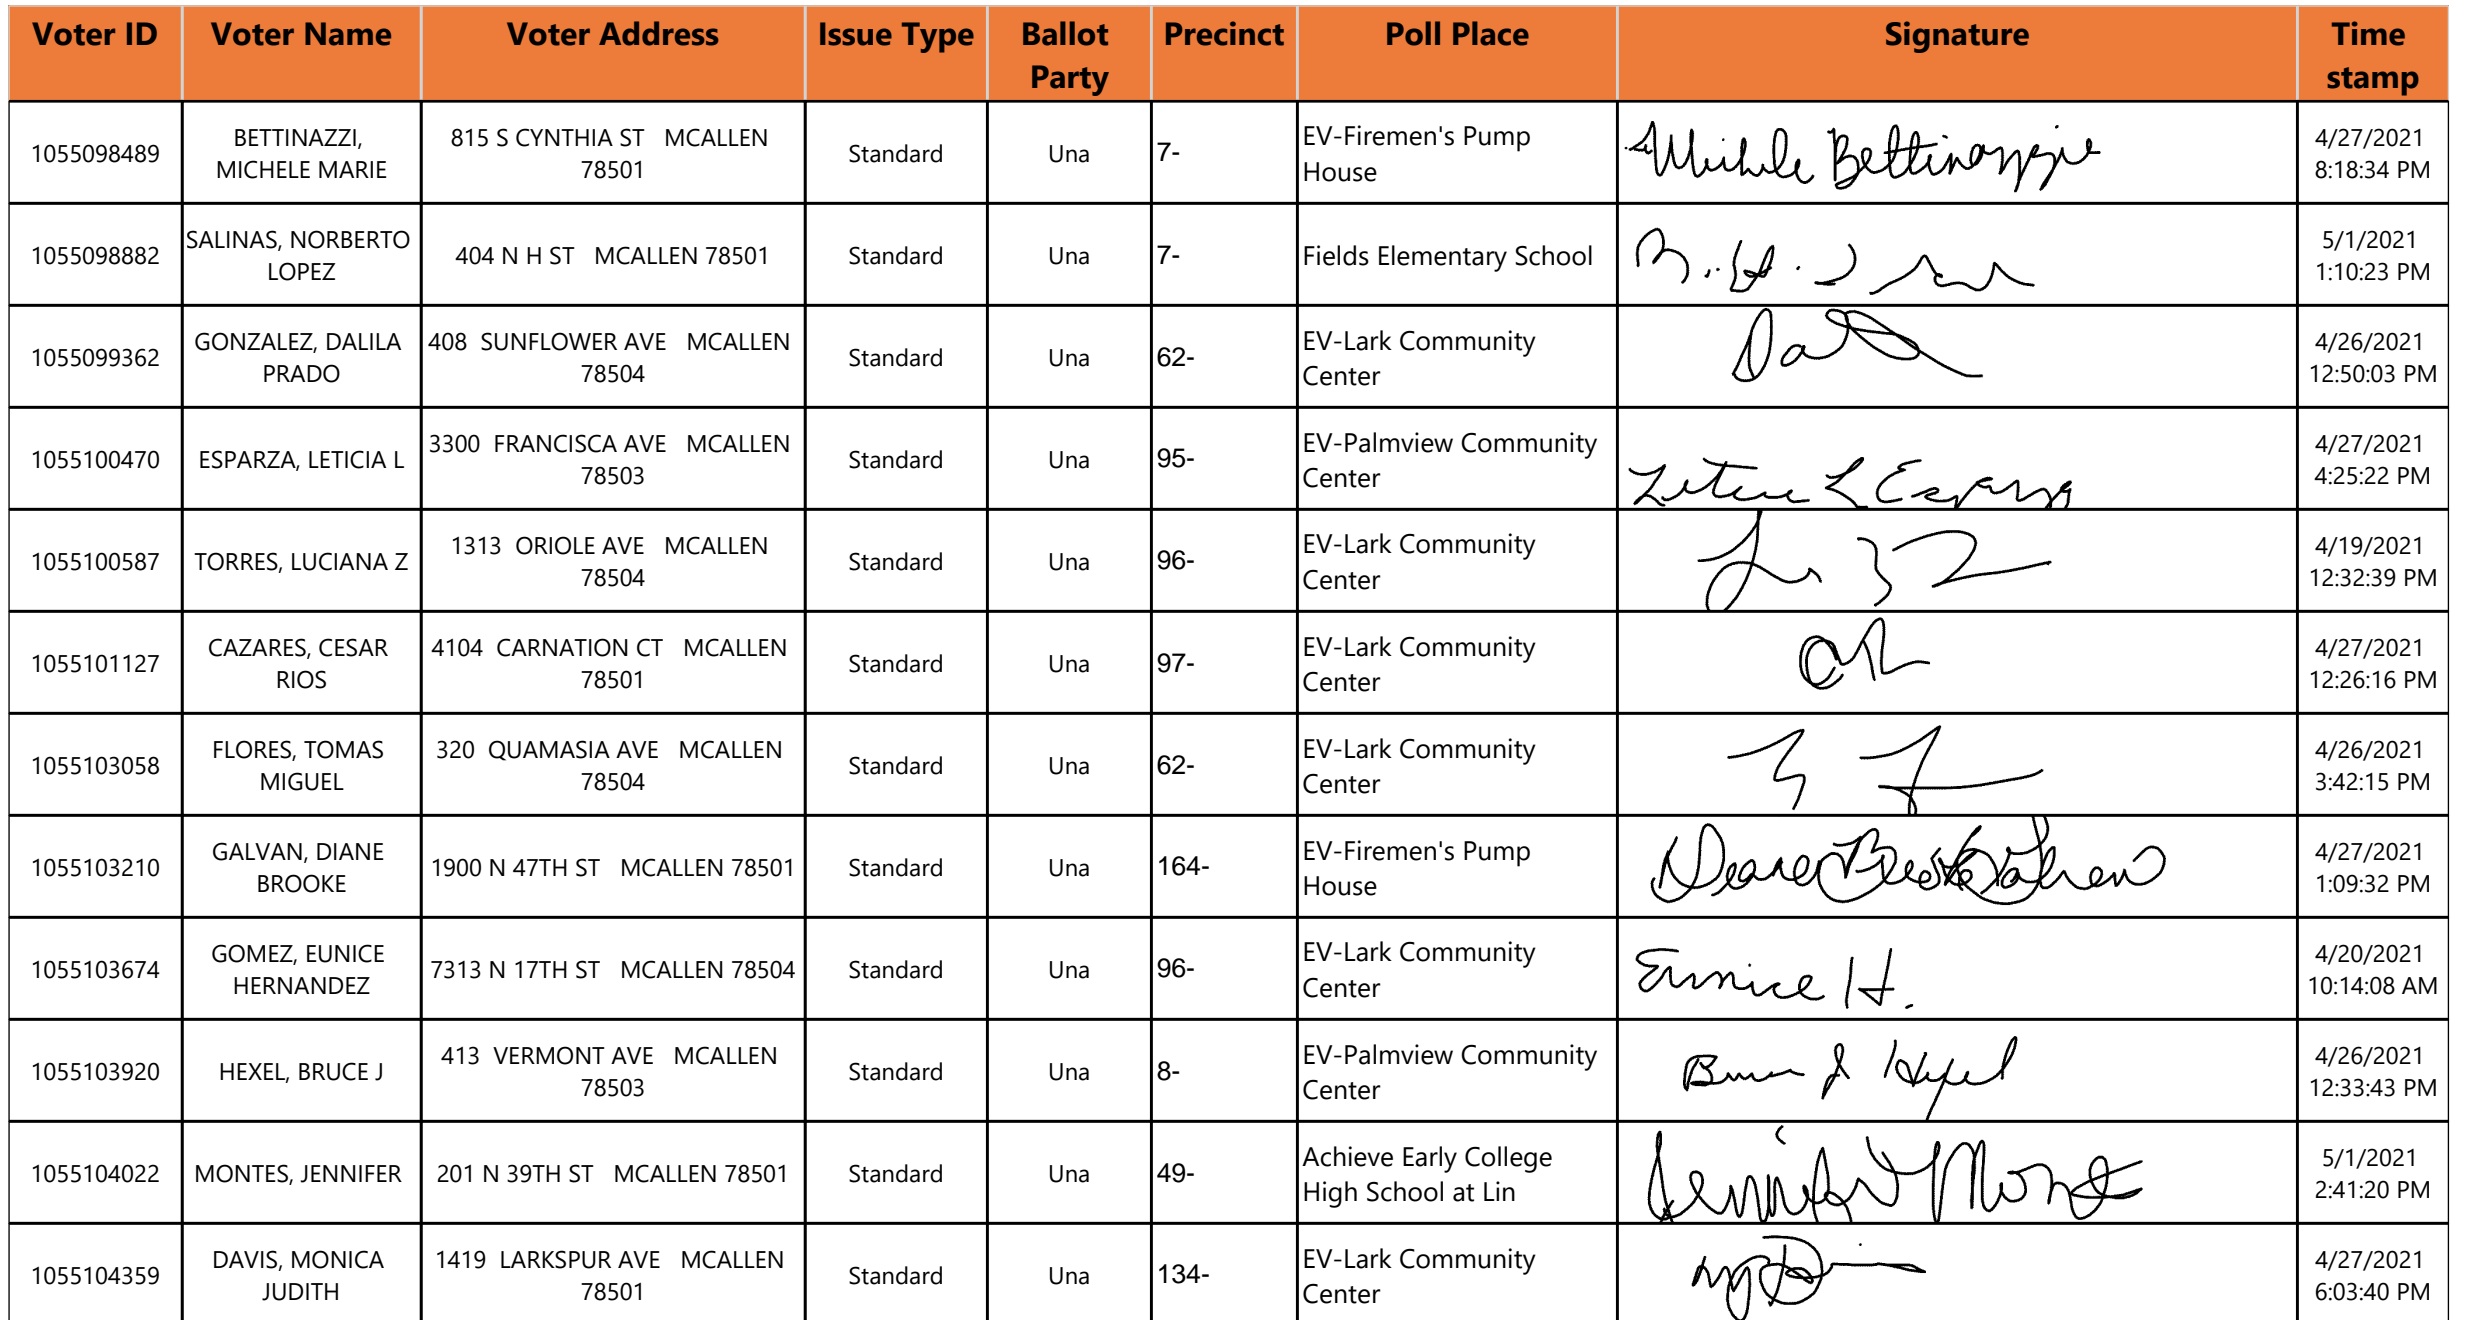 Voter ID Voter Name Voter Address Issue Type Ballot Party Precinct Poll Place Signature Time stamp
1055098489 BETTINAZZI, MICHELE MARIE 815 S CYNTHIA ST MCALLEN 78501 Standard Una 7- EV-Firemen's Pump House Michele Bettinazzi 4/27/2021 8:18:34 PM
1055098882 SALINAS, NORBERTO LOPEZ 404 N H ST MCALLEN 78501 Standard Una 7- Fields Elementary School 5/1/2021 1:10:23 PM
1055099362 GONZALEZ, DALILA PRADO 408 SUNFLOWER AVE MCALLEN 78504 Standard Una 62- EV-Lark Community Center 4/26/2021 12:50:03 PM
1055100470 ESPARZA, LETICIA L 3300 FRANCISCA AVE MCALLEN 78503 Standard Una 95- EV-Palmview Community Center L Esparza 4/27/2021 4:25:22 PM
1055100587 TORRES, LUCIANA Z 1313 ORIOLE AVE MCALLEN 78504 Standard Una 96- EV-Lark Community Center 4/19/2021 12:32:39 PM
1055101127 CAZARES, CESAR RIOS 4104 CARNATION CT MCALLEN 78501 Standard Una 97- EV-Lark Community Center 4/27/2021 12:26:16 PM
1055103058 FLORES, TOMAS MIGUEL 320 QUAMASIA AVE MCALLEN 78504 Standard Una 62- EV-Lark Community Center 4/26/2021 3:42:15 PM
1055103210 GALVAN, DIANE BROOKE 1900 N 47TH ST MCALLEN 78501 Standard Una 164- EV-Firemen's Pump House 4/27/2021 1:09:32 PM
1055103674 GOMEZ, EUNICE HERNANDEZ 7313 N 17TH ST MCALLEN 78504 Standard Una 96- EV-Lark Community Center Eunice H. 4/20/2021 10:14:08 AM
1055103920 HEXEL, BRUCE J 413 VERMONT AVE MCALLEN 78503 Standard Una 8- EV-Palmview Community Center Bruce J Hexel 4/26/2021 12:33:43 PM
1055104022 MONTES, JENNIFER 201 N 39TH ST MCALLEN 78501 Standard Una 49- Achieve Early College High School at Lin Jennifer Montes 5/1/2021 2:41:20 PM
1055104359 DAVIS, MONICA JUDITH 1419 LARKSPUR AVE MCALLEN 78501 Standard Una 134- EV-Lark Community Center 4/27/2021 6:03:40 PM